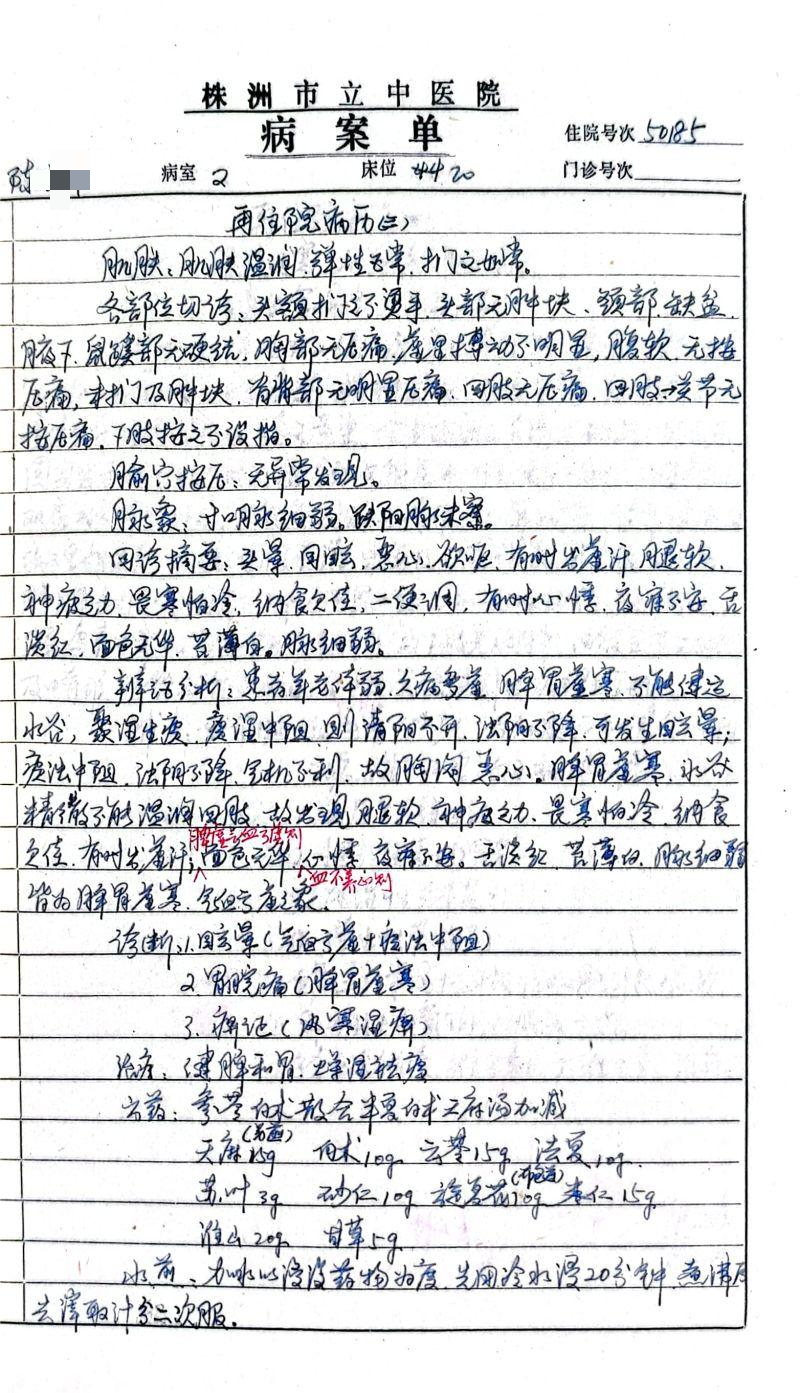 株洲市立中医院
病案单
住院号次 50185
病室 2 床位 4420 门诊号次
再住院病历(二)
肌肤：肌肤温润，弹性正常，扪之如常。
各部位切诊：头额扪之不烫手，头部无肿块、颈部、缺盆、
腋下、鼠蹊部无硬结，胸部无压痛，虚里搏动不明显，腹软，无按
压痛，未扪及肿块，脊背部无明显压痛，四肢无压痛，四肢关节无
按压痛，下肢按之不没指。
腧穴按压：无异常发现。
脉象：寸口脉细弱。趺阳脉未察。
四诊摘要：头晕、目眩、恶心、欲呕，有时出虚汗，腿软，
神疲乏力，畏寒怕冷，纳食欠佳，二便调，有时心悸，夜寐不安，舌
淡红，面色无华，苔薄白。脉细弱。
辨证分析：患者年老体弱，久病多虚，脾胃虚寒，不能健运
水谷，聚湿生痰，痰湿中阻，则清阳不升，浊阴不降，可发生眩晕，
痰浊中阻，浊阴不降，气机不利，故胸闷恶心。脾胃虚寒，水谷
精微不能温润四肢，故出现腿软，神疲乏力，畏寒怕冷，纳食
欠佳，有时出虚汗；面色无华，心悸，夜寐不安。舌淡红，苔薄白，脉细弱
血不养心则
皆为脾胃虚寒，气血亏虚之象。
诊断：1.眩晕（气血亏虚+痰浊中阻）
2.胃脘痛（脾胃虚寒）
3.痹证（风寒湿痹）
治疗：健脾和胃，燥湿祛痰
方药：参苓白术散合半夏白术天麻汤加减
天麻15g 白术10g 云苓15g 法夏10g
苏叶3g 砂仁10g 旋复花10g（布包煎） 枣仁15g
淮山20g 甘草5g
水煎：加水以浸没药物为度，先用冷水浸20分钟，煮沸后
去滓取汁分二次服。